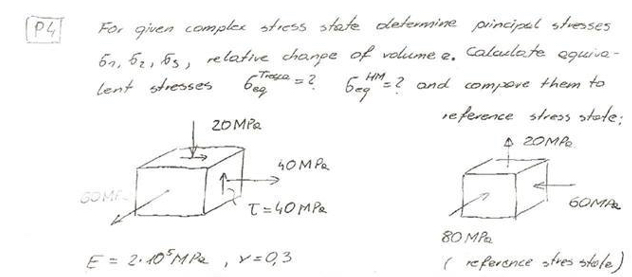 P4
For given complex stress state determine principal stresses
σ1, σ2, σ3, relative change of volume e. Calculate equiva-
lent stresses σeq^Tresca = ? σeq^HM = ? and compare them to
reference stress state:
20 MPa
20 MPa
40 MPa
60 MPa
τ = 40 MPa
80 MPa
E = 2·10^5 MPa, ν = 0,3
( reference stres state)